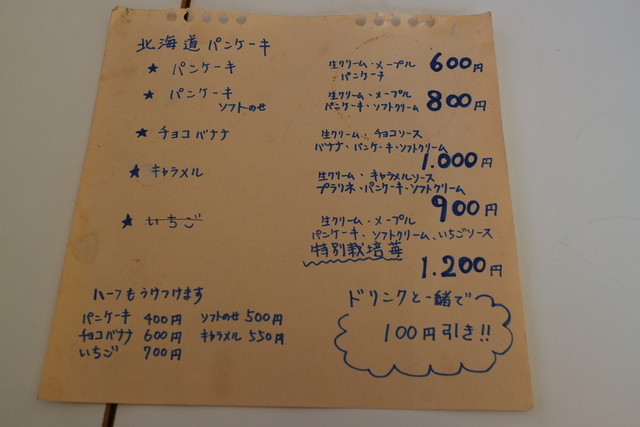 北海道パンケーキ
★ パンケーキ 生クリーム・メープル
パンケーキ 600円
★ パンケーキ 生クリーム・メープル
ソフトのせ パンケーキ・ソフトクリーム 800円
★ チョコバナナ 生クリーム・チョコソース
バナナ・パンケーキ・ソフトクリーム
1.000円
★ キャラメル 生クリーム・キャラメルソース
プラリネ・パンケーキ・ソフトクリーム
900円
★ いちご 生クリーム・メープル
パンケーキ・ソフトクリーム、いちごソース
特別栽培苺
1.200円
ハーフもうけつけます
パンケーキ 400円 ソフトのせ 500円
チョコバナナ 600円 キャラメル 550円
いちご 700円
ドリンクと一緒で
100円引き!!